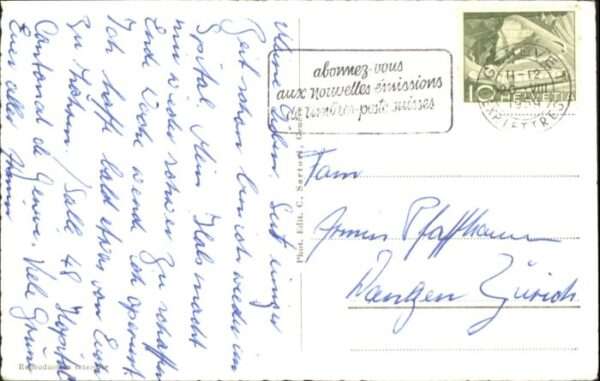 Meine Lieben. Seit einiger
Zeit schon bin ich wieder im
Spital. Mein Hals macht
mir wieder schwer zu schaffen
Ende Woche werde ich operiert.
Ich hoffe bald etwas von Euch
zu hören. Salle 48 Hôpital
Cantonal de Genève. Viele Grüsse
Euch allen
Reproduction interdite
Phot. Edit. C. Sartori, Genève
abonnez-vous
aux nouvelles émissions
de timbres-poste suisses
GENÈVE 1
11-12
EXP. LETTRES
10
HELVETIA
Fam
Armin Pfaffhauser
Wangen Zürich